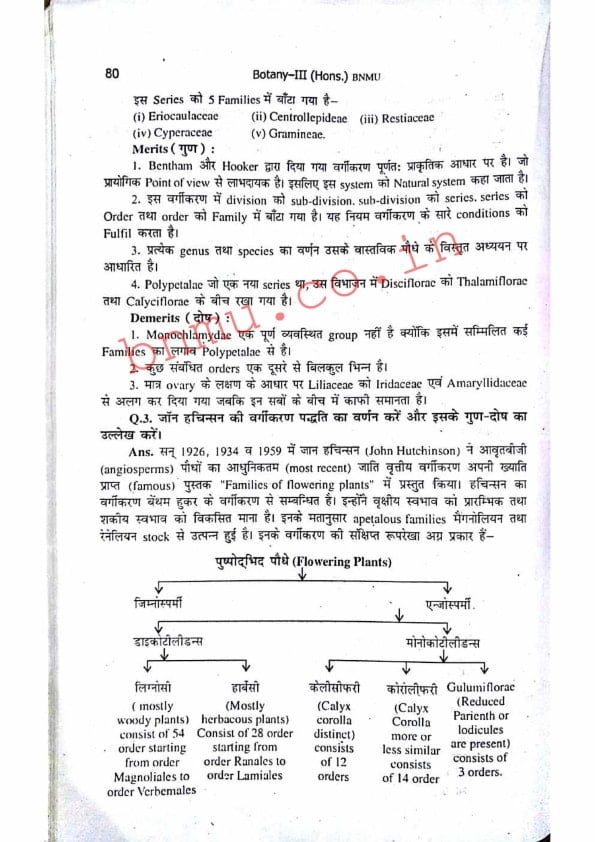 80
Botany–III (Hons.) BNMU
इस Series को 5 Families में बाँटा गया है–
(i) Eriocaulaceae (ii) Centrollepideae (iii) Restiaceae
(iv) Cyperaceae (v) Gramineae.
Merits ( गुण ) :
1. Bentham और Hooker द्वारा दिया गया वर्गीकरण पूर्णतः प्राकृतिक आधार पर है। जो
प्रायोगिक Point of view से लाभदायक है। इसलिए इस system को Natural system कहा जाता है।
2. इस वर्गीकरण में division को sub-division. sub-division को series. series को
Order तथा order को Family में बाँटा गया है। यह नियम वर्गीकरण के सारे conditions को
Fulfil करता है।
3. प्रत्येक genus तथा species का वर्णन उसके वास्तविक पौधे के विस्तृत अध्ययन पर
आधारित है।
4. Polypetalae जो एक नया series था, उस विभाजन में Disciflorae को Thalamiflorae
तथा Calyciflorae के बीच रखा गया है।
Demerits ( दोष ) :
1. Monochlamydae एक पूर्ण व्यवस्थित group नहीं है क्योंकि इसमें सम्मिलित कई
Families का लगाव Polypetalae से है।
2. कुछ संबंधित orders एक दूसरे से बिलकुल भिन्न है।
3. मात्र ovary के लक्षण के आधार पर Liliaceae को Iridaceae एवं Amaryllidaceae
से अलग कर दिया गया जबकि इन सबों के बीच में काफी समानता है।
Q.3. जॉन हचिन्सन की वर्गीकरण पद्धति का वर्णन करें और इसके गुण-दोष का
उल्लेख करें।
Ans. सन् 1926, 1934 व 1959 में जान हचिन्सन (John Hutchinson) ने आवृतबीजी
(angiosperms) पौधों का आधुनिकतम (most recent) जाति वृत्तीय वर्गीकरण अपनी ख्याति
प्राप्त (famous) पुस्तक "Families of flowering plants" में प्रस्तुत किया। हचिन्सन का
वर्गीकरण बेंथम हुकर के वर्गीकरण से सम्बन्धित है। इन्होंने वृक्षीय स्वभाव को प्रारम्भिक तथा
शकीय स्वभाव को विकसित माना है। इनके मतानुसार apetalous families मैगनोलियन तथा
रेनेलियन stock से उत्पन्न हुई है। इनके वर्गीकरण की संक्षिप्त रूपरेखा अग्र प्रकार हैं–
पुष्पोद्भिद पौधे (Flowering Plants)
जिम्नोस्पर्मी
एन्जोस्पर्मी.
डाइकोटीलीडन्स
मोनोकोटीलीडन्स
लिग्नोसी
( mostly
woody plants)
consist of 54
order starting
from order
Magnoliales to
order Verbemales
हार्बेसी
(Mostly
herbacous plants)
Consist of 28 order
starting from
order Ranales to
order Lamiales
केलीसीफरी
(Calyx
corolla
distinct)
consists
of 12
orders
कोरोलीफरी
(Calyx
Corolla
more or
less similar
consists
of 14 order
Gulumiflorae
(Reduced
Parienth or
lodicules
are present)
consists of
3 orders.
bnmu.co.in